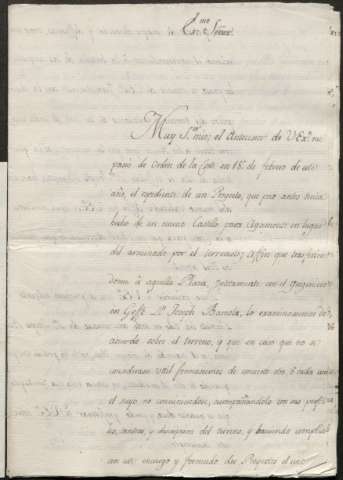 Exmo Señor
Muy Sr. mio: el Antecesor de V. Exa. me
de orden de la Corte en 18 de febrero de este
año, el expediente de un Proyecto, que poco antes havia
hecho de un nuevo Castillo para en lugar
del arruinado por el terremoto; Affin que trasfirien
dome á aquella Plaza, juntamente con el Yngeniero
en Gefe Dn. Joseph Banola, lo examinasemos de
acuerdo sobre el terreno, y que en caso que no
util formasemos de concierto otro ó cada uno
el suyo no comunicados, acompañandolo con sus perfi
les, y del terreno, y haviendo cumpli
en su encargo y formado dos Proyectos el uno